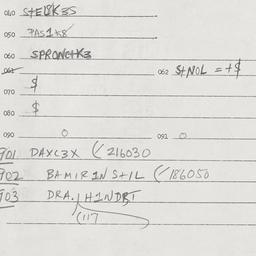 040 S+EL8K3S
050 7AS1K8
060 SPRONC+K3
061 062 S+NOL = +$
070 $
080 $
090 0 091 0
901 DAXC3X (216030
902 BAMIR1N S+1L (186050
903 DRA. H1NDBT
(117